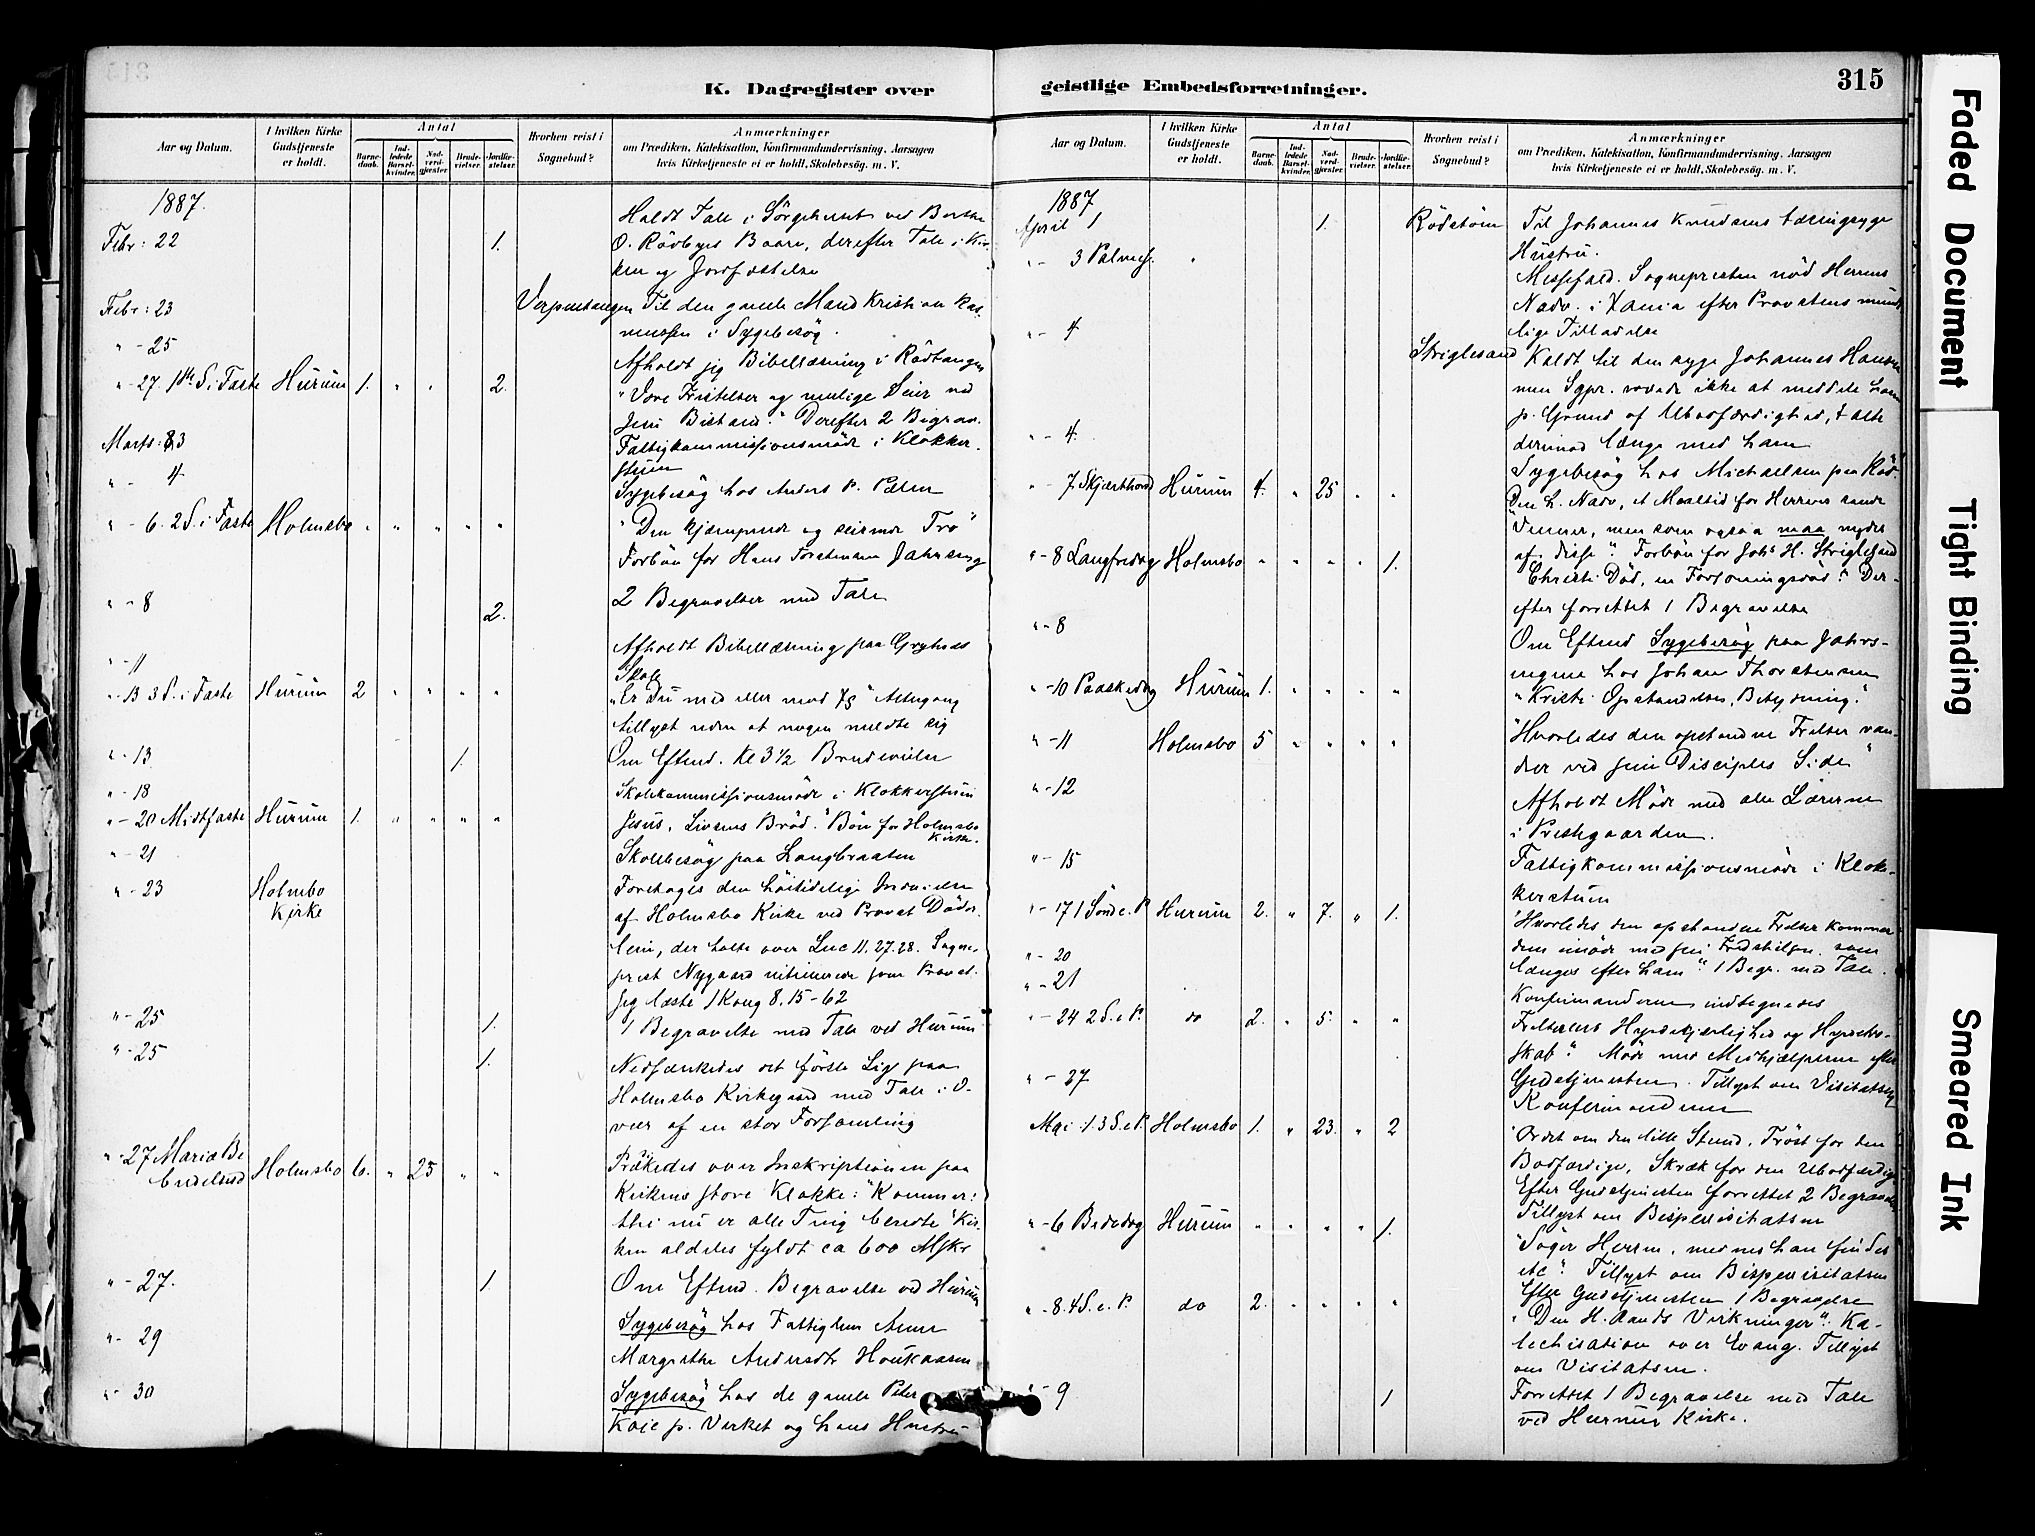 K. Dagregister over
Aar og Datum.
I hvilken Kirke Gudstjeneste er holdt.
Antal
Barnedaab.
Indledede Barselkvinder.
Nadverdgjæster
Brudevielser.
Jordfæstelser.
Hvorhen reist i Sognebud?
Anmærkninger
om Prædiken, Katekisation, Konfirmandundervisning, Aarsagen
hvis Kirketjeneste ei er holdt, Skolebesøg. m. V.
1887.
Febr: 22 1. Holdt Tale i Sørgehuset ved
O. Rødbyes Baare, derefter Tale i Kir
ken og Jordfæstelse
Febr: 23 Til den gamle Mand Kristian Ras
mussen i Sygebesøg.
" - 25 Afholdt jeg Bibellæsning i Rødtangen
" - 27. 1ste S. i Faste Hurum 1. " " 2. "Vore Fristelser og mulige Seier ved
Jesu Bistand." Derefter 2 Begrav.
Marts: 3 Fattigkommissionsmøde i Klokker
stuen
" - 4 Sygebesøg hos Anders P. Pælen
" - 6. 2 S. i Faste Holmsbo " " " " " "Den kjæmpende og seirende Tro"
Forbøn for Hans Torstensen Jahrseng
" - 8 2. 2 Begravelser med Tale
" - 11 Afholdt Bibellæsning paa Grytnes
Skole
" - 13 3 S. i Faste Hurum 2 " " " " "Er Du med eller mod " Altergang
tillyst uden at nogen meldte sig
" - 13 1. Om Efterd. Kl 3 1/2 Brudevielse
" - 18 Skolekommissionsmøde i Klokkerstuen
" - 20 Midtfaste Hurum 1. " " " " Jesus, Livsens Brød." Bøn for Holmsbo
Kirke.
" - 21 Skolebesøg paa Langbraaten
" - 23 Holmsbo Foretoges den høitidelige Indvielse
Kirke af Holmsbo Kirke ved Provst
der talte over Luc 11. 27. 28. Sogne
prest Nygaard som Provst.
Jeg læste 1 Kong 8, 15-62
" - 25 1. 1 Begravelse med Tale ved Hurum
" - 25 1. Nedsænkedes det første Lig paa
Holmsbo Kirkegaard med Tale i O-
vær af en stor Forsamling
" - 27 Mariæ Be
budelsesd Holmsbo 6. " 25 " " Prækedes over Inskriptionen paa
Kirkens store Klokke: "Kommer:
thi nu er alle Ting beredte" Kir-
ken aldeles fyldt ca 600 Mskr
" - 27. 1. Om Efterd. Begravelse ved Hurum
" - 29 Sygebesøg hos Fattiglem Anne
Margrethe Andersdtr Houkaasen
" - 30 Sygebesøg hos de gamle Peter
p. Virket og hans Hustru
geistlige Embedsforretninger.
315
Aar og Datum.
I hvilken Kirke Gudstjeneste er holdt.
Antal
Barnedaab.
Indledede Barselkvinder.
Nadverdgjæster
Brudevielser.
Jordfæstelser.
Hvorhen reist i Sognebud?
Anmærkninger
om Prædiken, Katekisation, Konfirmandundervisning, Aarsagen
hvis Kirketjeneste ei er holdt, Skolebesøg. m. V.
1887
April 1 1. Til Johannes Knudsens tæringsyge
Hustru.
" - 3 Palmes. " Messefald. Sognepresten nød Herrens
Nadv. i efter Provstens mundt
lige Tilladelse
" - 4 Striglesand Kaldt til den syge Johannes Hansen
men Sgpr. vovede ikke at meddele ham
p. Grund af Ubodfærdighed, talte
derimod længe med ham
" - 4 Sygebesøg hos Michaelsen paa Rød.
" - 7 Skjærthorsd Hurum 4. " 25 " " "Den h. Nadv, et Maaltid for Herrens sande
Venner, men som ogsaa maa nydes
af disse". Forbøn for Johs H. Striglesand
" - 8 Langfredag Holmsbo " " " " 1. "Christi Død, en Forsoningsdød". Der-
efter forrettet 1 Begravelse
" - 8 Om Efterd Sygebesøg paa Jahrs-
engene hos Johan Thorstensen
" - 10 Paaskedag Hurum 1. " " " " "Kristi Opstandelses Betydning."
" - 11 Holmsbo 5 " " " " "Hvorledes den opstandne Frelser van-
drer ved sine Disciples Side"
" - 12 Afholdt Møde med alle Lærerne
i Prestegaarden.
" - 15 Fattigkommissionsmøde i Klok-
kerstuen
" - 17 1 Sønd e. P Hurum 2. " 7. " 1. "Hvorledes den opstandne Frelser kommer
dem imøde med sin Fredshilsen som
længes efter ham" 1 Begr. med Tale.
" - 20
" - 21 Konfirmanderne indtegnedes
" - 24 2 S. e P. do 2. " 5. " " Frelserens Hyrdekjærlighed og Hyrdesk-
skab". Møde med Medhjælperne efter
Gudstjenesten. Tillyst om Visitatsen
" - 27 Konfirmanderne
Mai: 1. 3 S. e P. Holmsbo 1. " 23. " 2 "Ordet om den lille Stund, Trøst for den
Bodfærdige, Skræk for den Ubodfærdige
Efter Gudstjenesten forrettet 2 Begravelser
Tillyst om Bispevisitatsen
" - 6 Bededag Hurum " " " " 1. "Søger Herren, medens han findes
etc". Tillyst om Bispevisitatsen
Efter Gudstjenesten 1 Begravelse
" - 8. 4 S. e. P. do 2. " " " " "Den H. Aands Virkninger". Ka-
techisation over Evang. Tillyst
om Visitatsen.
" - 9 1 Forrettet 1 Begravelse med Tale
ved Hurum Kirke.
Faded Document
Tight Binding
Smeared Ink